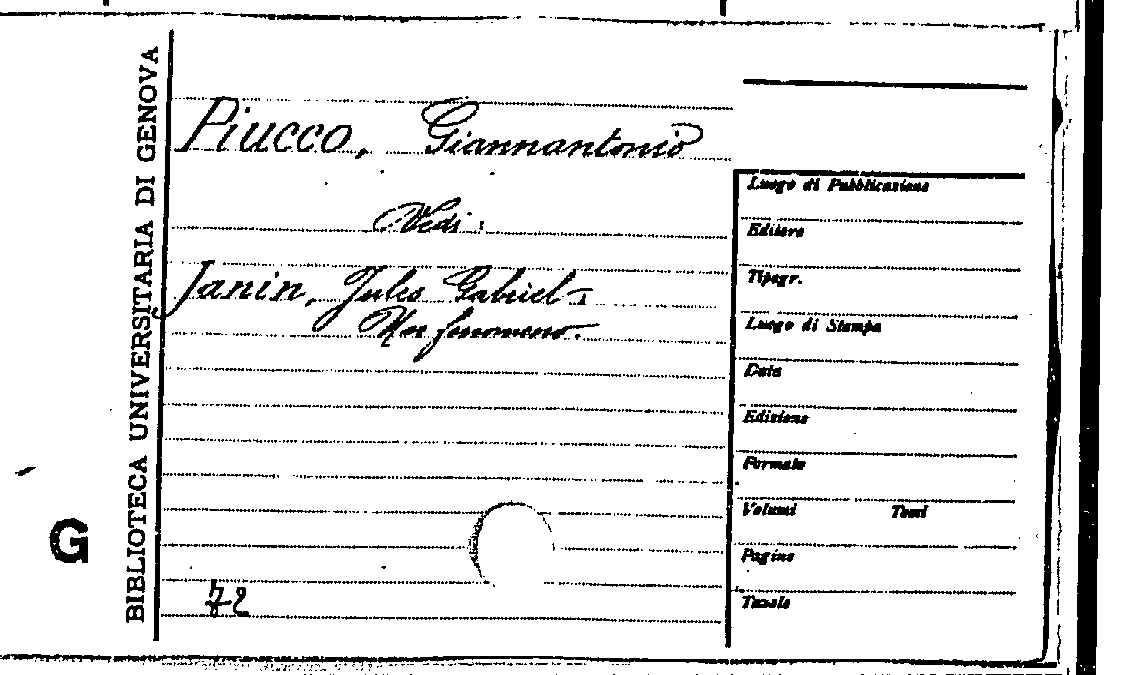 BIBLIOTECA UNIVERSITARIA DI GENOVA
G
Piucco, Giannantonio
Vedi:
Janin, Jules Gabriel -
fenomeno.
72
Luogo di Pubblicazione
Editore
Tipogr.
Luogo di Stampa
Data
Edizione
Formato
Volumi Tomi
Pagine
Tavole